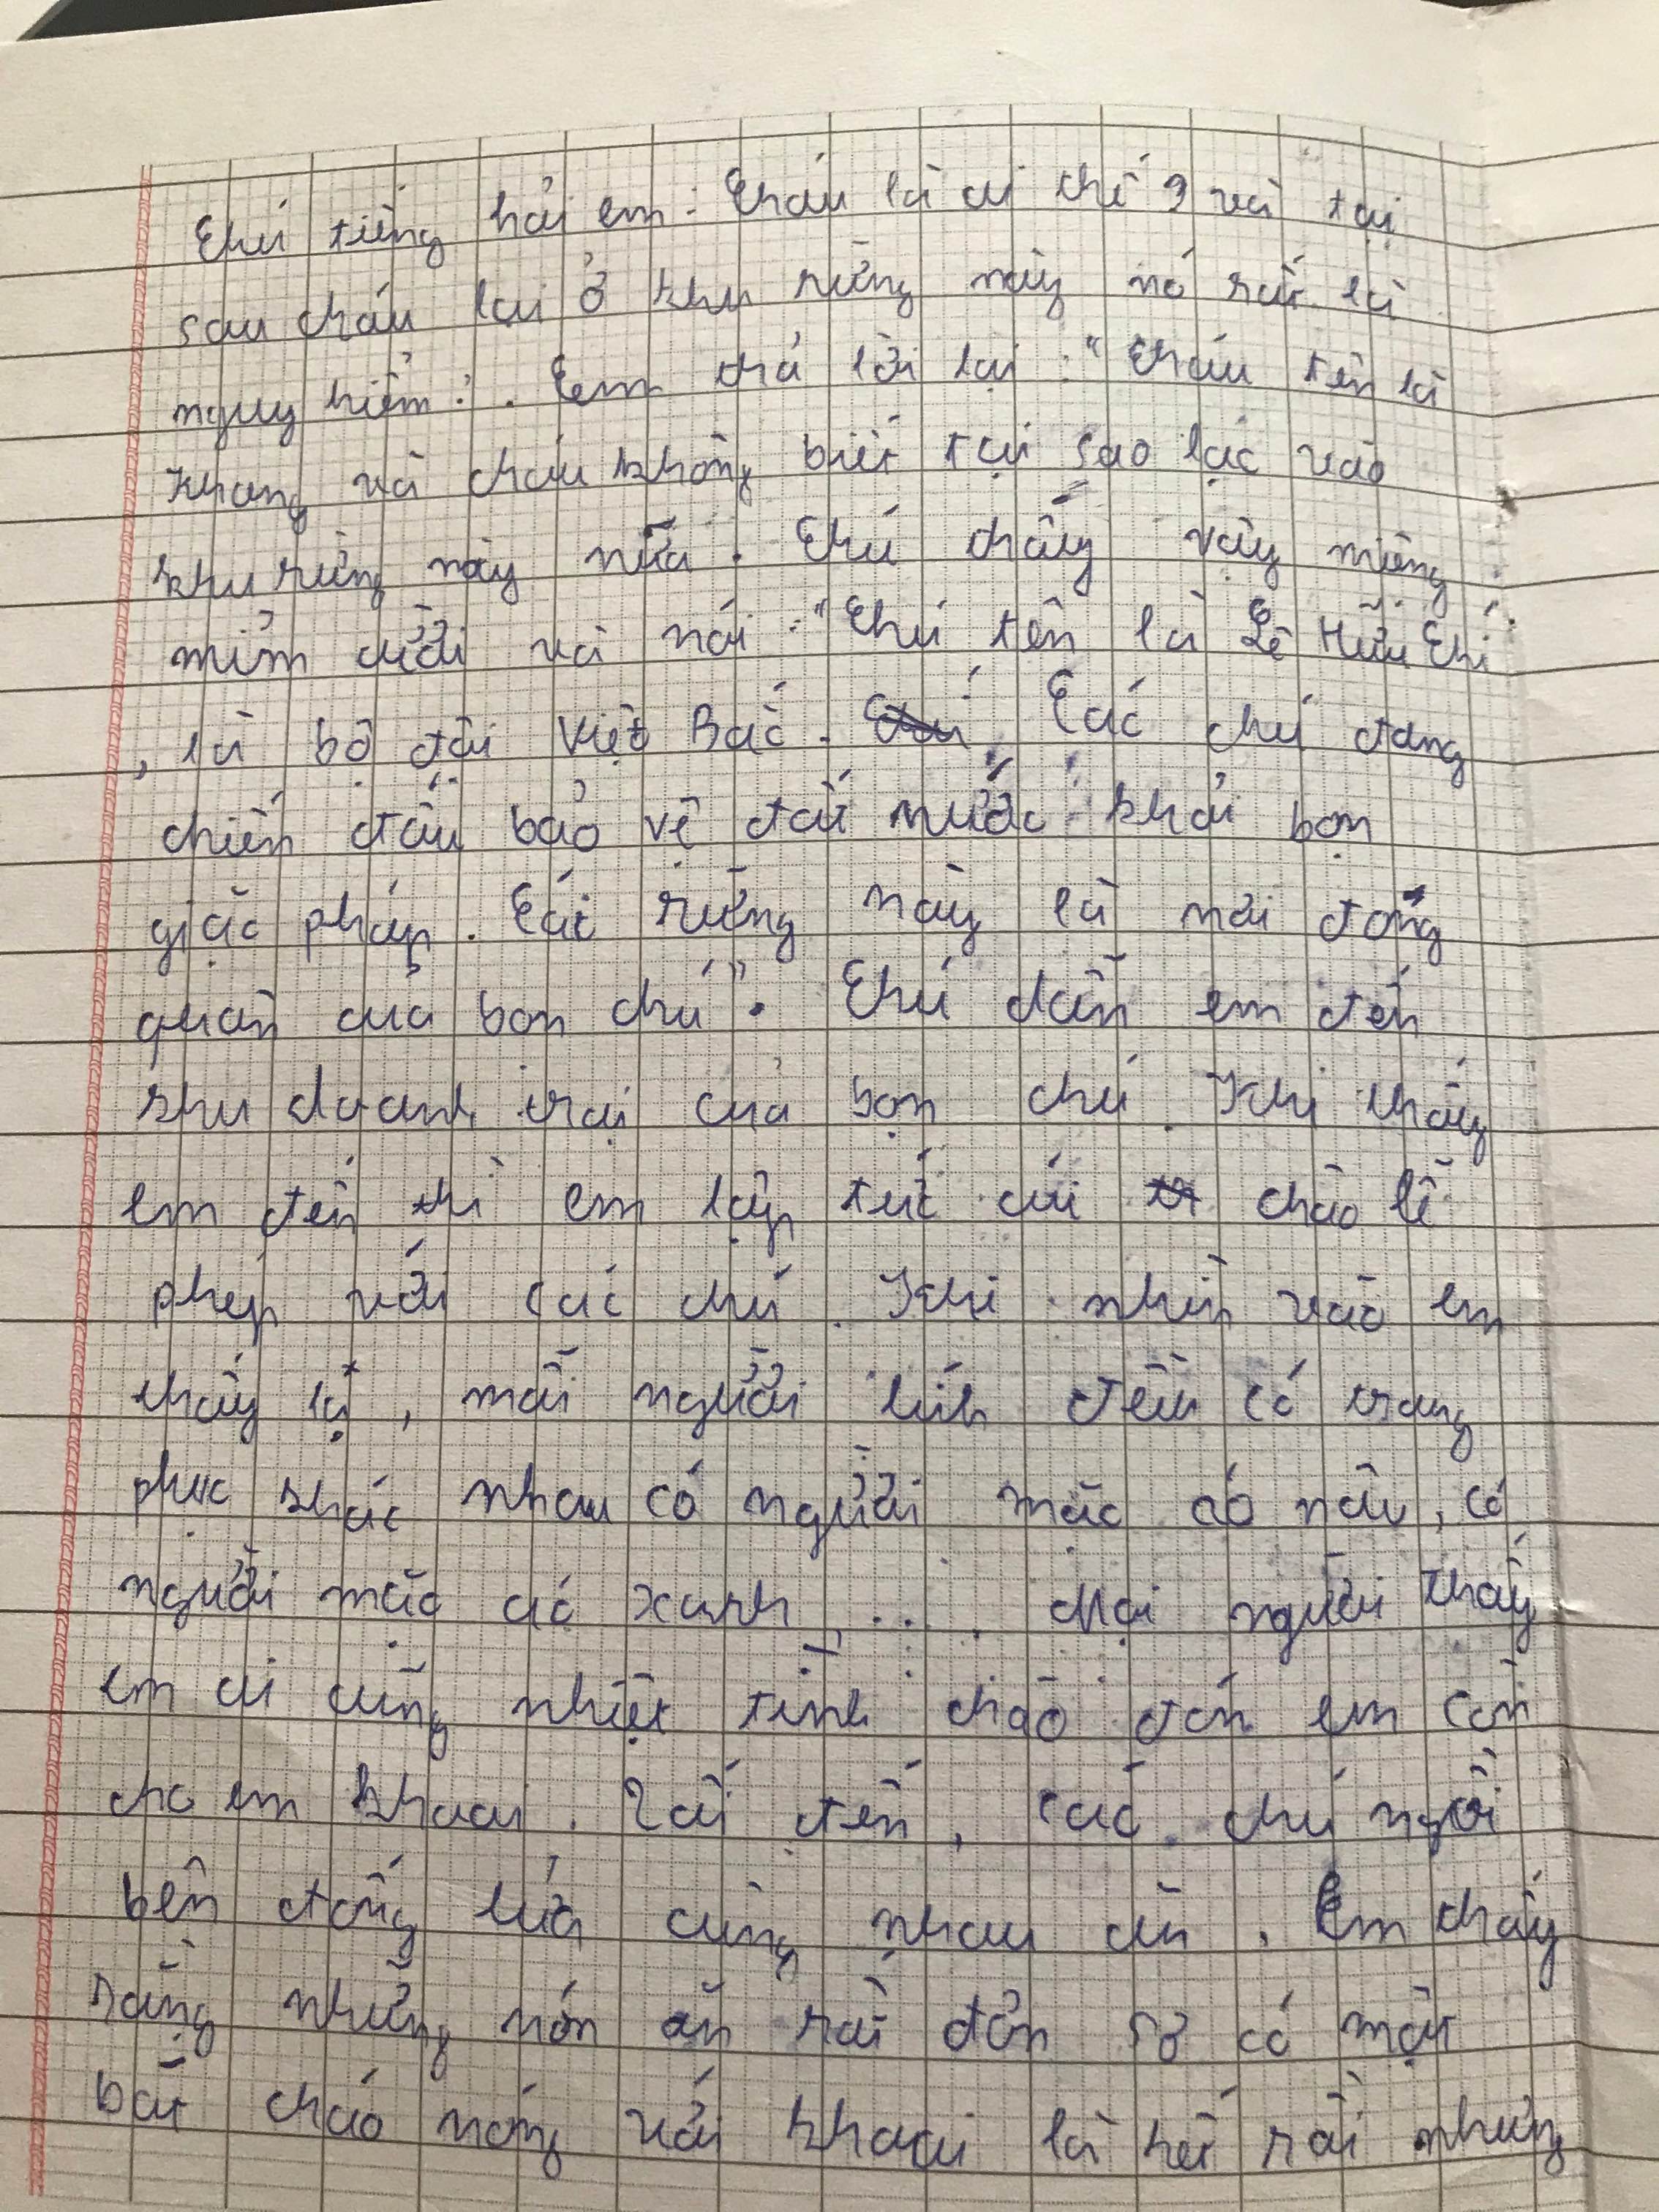 Chú tiếng hỏi em : Cháu là ai thế ? và tại
sau cháu lại ở khu rừng này nó rất là
nguy hiểm". Em trả lời lại : "Cháu tên là
Khang và cháu không biết tại sao lạc vào
khu rừng này nữa . Chú thấy vậy miệng
mỉm cười và nói : "Chú tên là Lê Hữu Chí
, là bộ đội Việt Bắc . Các chú đang
chiến đấu bảo vệ đất nước khỏi bọn
giặc pháp . Các rừng này là nơi đóng
quân của bọn chú". Chú dẫn em đến
khu doanh trại của bọn chú . Khi thấy
em đến thì em lập tức cúi chào lễ
phép với các chú . Khi nhìn vào em
thấy lạ , mỗi người lính đều có trang
phục khác nhau có người mặc áo nâu , có
người mặc áo xanh , ... . Mọi người thấy
em ai cũng nhiệt tình chào đón em còn
cho em khoai . Tối đến , các chú ngồi
bên đống lửa cùng nhau ăn . Em thấy
rằng những món ăn rất đơn sơ có một
bát cháo nóng với khoai là hết rồi nhưng